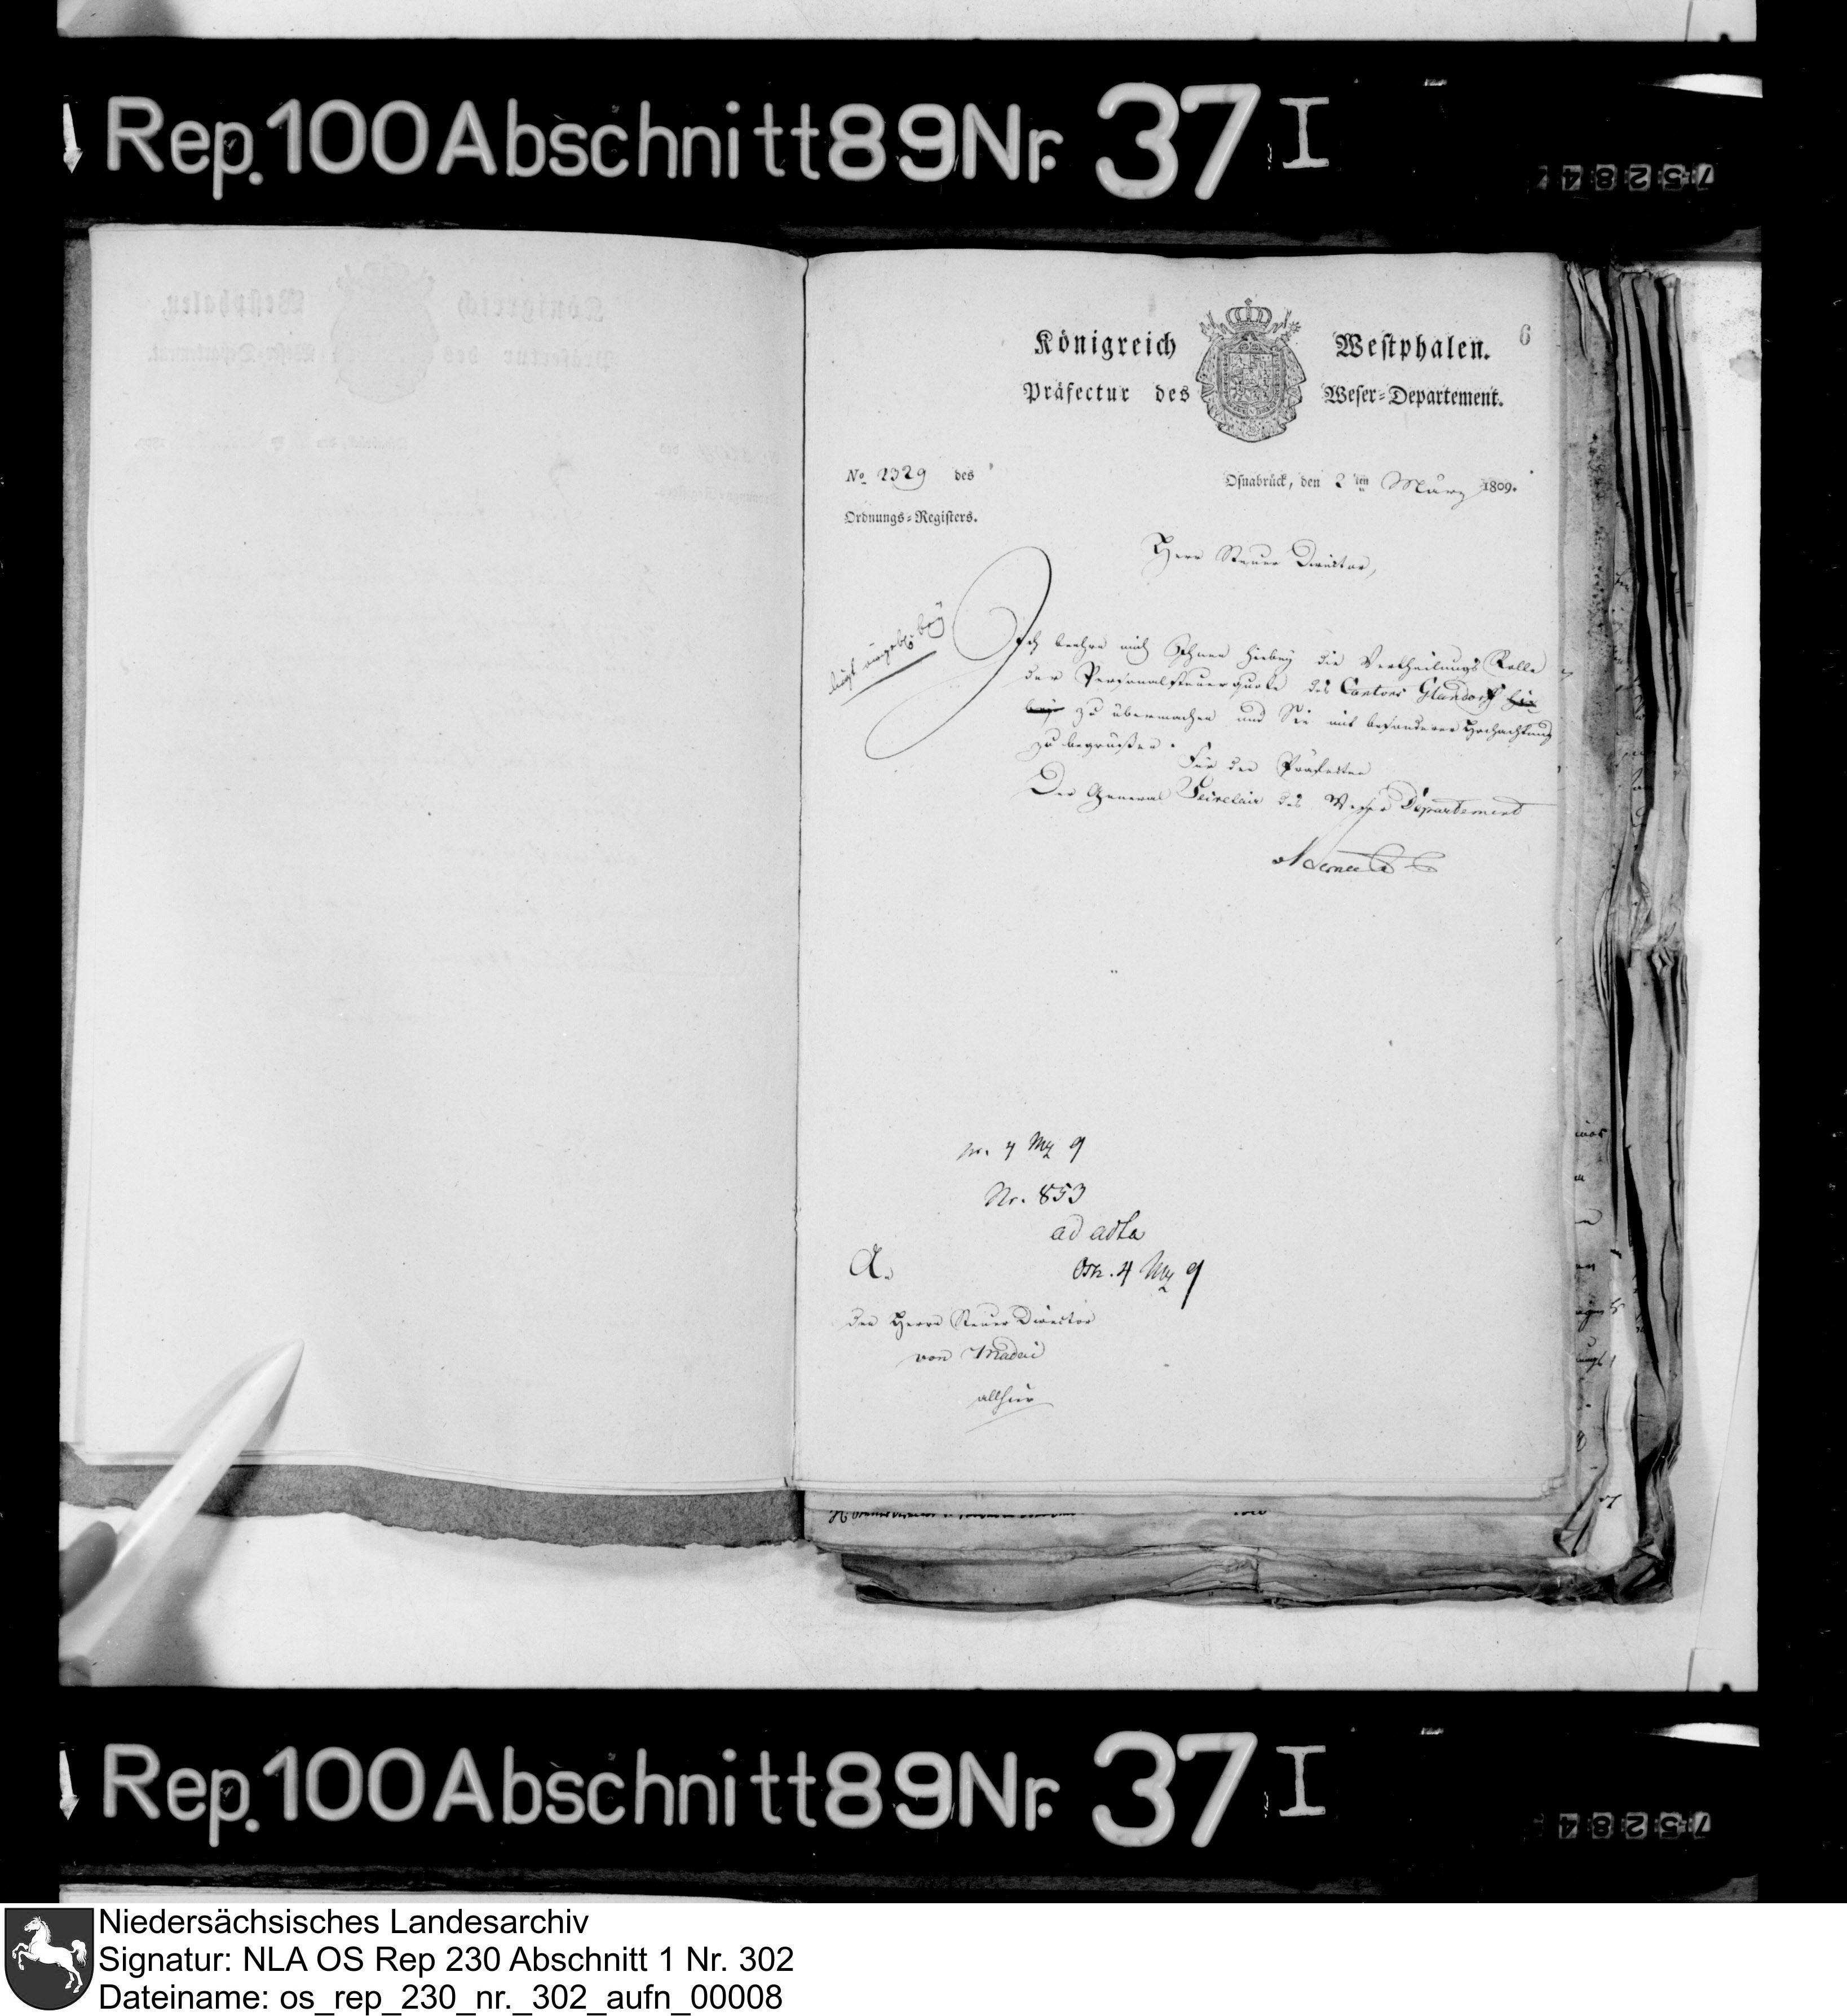 Rep. 100 Abschnitt 89 Nr. 37 I
75284
6
Königreich Westphalen.
Präfectur des Weser-Departement.
No. 2329 des
Ordnungs-Registers.
Osnabrück, den 2ten März 1809.
Herr Steuer Director,
Ich beehre mich Ihnen hiebey die Vertheilungs Rolle
der Personalsteuerquote des Cantons Glandorff hie
bey zu übermachen und Sie mit besonderer Hochachtung
zu begrüßen.
Für den Präfecten
Der General Secretair des Weser Departement
pr. 4 Mz 9
Nr. 853
ad acta
Osn. 4 Mz 9
A.
den Herrn Steuer Director
von
allhier
Rep. 100 Abschnitt 89 Nr. 37 I
75284
Niedersächsisches Landesarchiv
Signatur: NLA OS Rep 230 Abschnitt 1 Nr. 302
Dateiname: os_rep_230_nr._302_aufn_00008